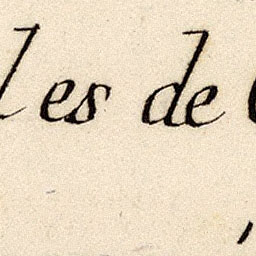 les de